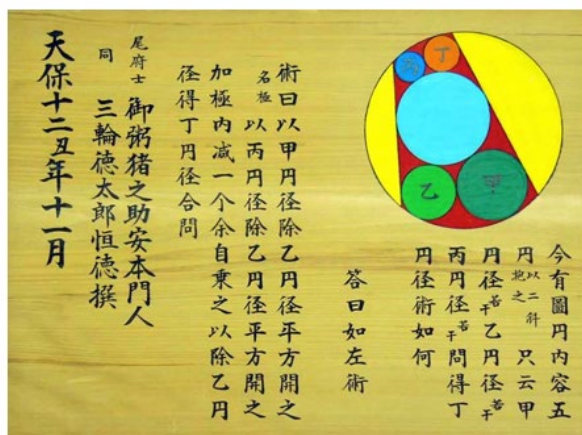 丁
丙
乙
甲
今有圖円内容五
円以二斜抱之 只云甲
円径若干乙円径若干
丙円径若干問得丁
円径術如何
答曰如左術
術曰以甲円径除乙円径平方開之
名極 以丙円径除乙円径平方開之
加極内減一个余自乗之以除乙円
径得丁円径合問
尾府士 御粥猪之助安本門人
同 三輪徳太郎恒徳撰
天保十二丑年十一月